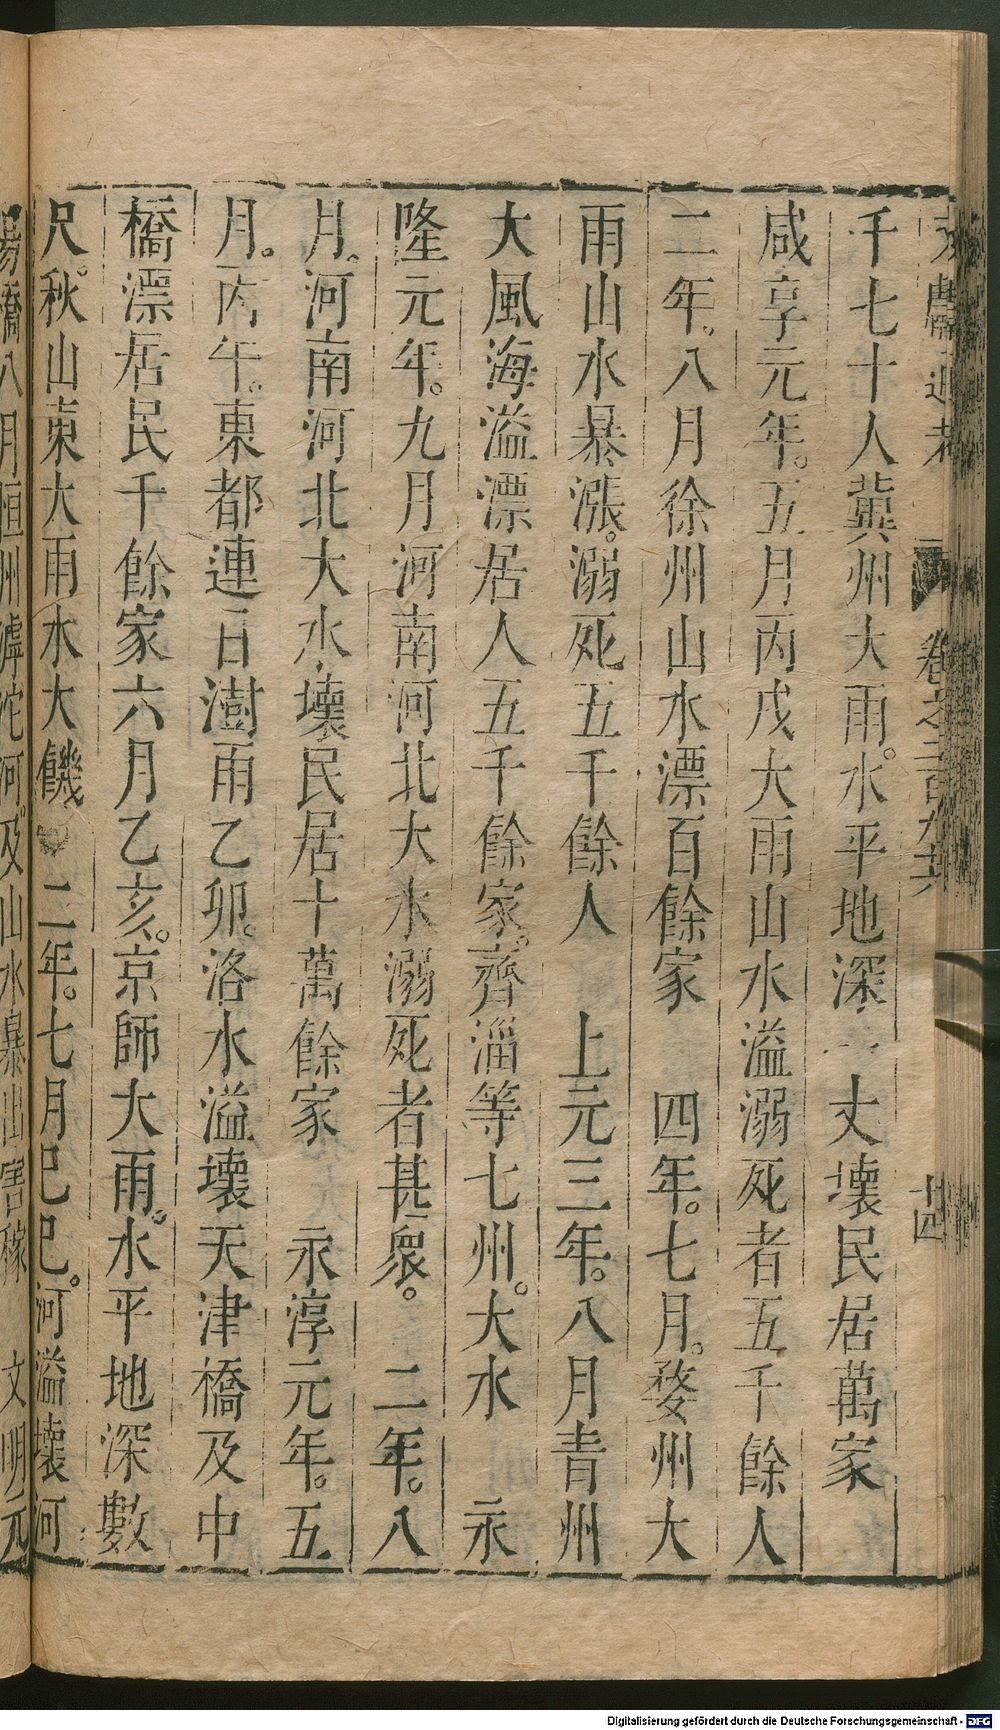 文獻通考 卷之二百九十六 十四
千七十人冀州大雨。水平地深一丈壞民居萬家
咸亨元年。五月丙戌大雨山水溢溺死者五千餘人
二年。八月徐州山水漂百餘家 四年。七月。婺州大
雨山水暴漲。溺死五千餘人 上元三年。八月青州
大風海溢漂居人五千餘家。齊淄等七州。大水 永
隆元年。九月河南河北大水溺死者甚衆。 二年。八
月。河南河北大水壞民居十萬餘家 永淳元年。五
月。丙午。東都連日澍雨乙卯。洛水溢壞天津橋及中
橋漂居民千餘家六月乙亥。京師大雨。水平地深數
尺。秋山東大雨水大饑 二年。七月己巳。河溢壞河
陽橋八月恒州滹沱河。及山水暴出害稼 文明元
Digitalisierung gefördert durch die Deutsche Forschungsgemeinschaft - DFG